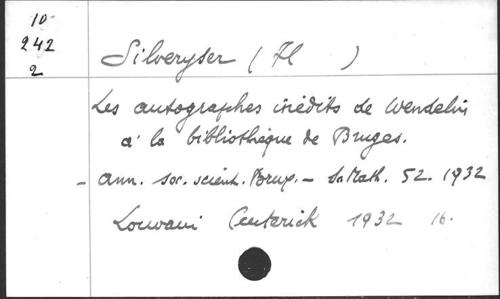 10
242
2
Silveryser (Fl )
Les autographes inédits de Wendelin
à la bibliothèque de Bruges.
- Ann. soc. scient. Brux. - Sc Math. 52. 1932
Louvain Ceuterick 1932 16.